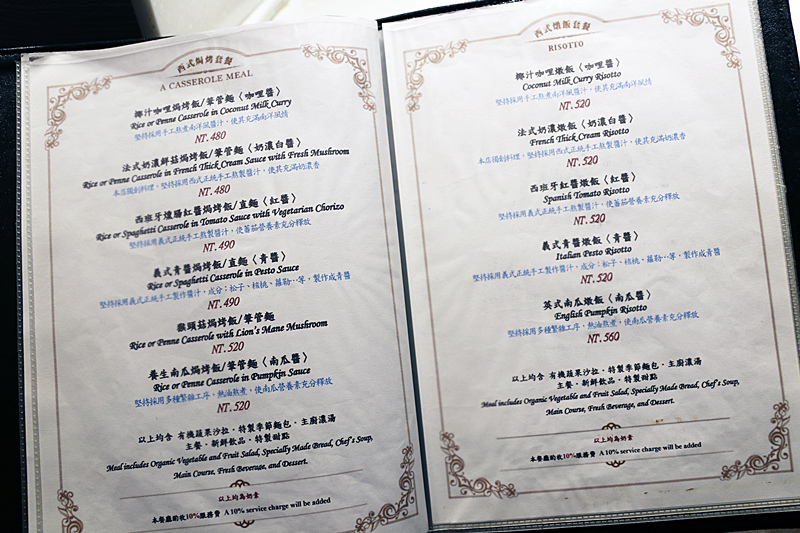 西式焗烤套餐
A CASSEROLE MEAL
椰汁咖哩焗烤飯/筆管麵〈咖哩醬〉
Rice or Penne Casserole in Coconut Milk Curry
堅持採用手工熬煮南洋風醬汁，使其充滿南洋風情
NT.480
法式奶濃鮮菇焗烤飯/筆管麵〈奶濃白醬〉
Rice or Penne Casserole in French Thick Cream Sauce with Fresh Mushroom
本店獨創料理，堅持採用西式正統手工熬製醬汁，使其充滿奶濃香
NT.480
西班牙燻腸紅醬焗烤飯/直麵〈紅醬〉
Rice or Spaghetti Casserole in Tomato Sauce with Vegetarian Chorizo
堅持採用義式正統手工熬製醬汁，使蕃茄營養素充分釋放
NT.490
義式青醬焗烤飯/直麵〈青醬〉
Rice or Spaghetti Casserole in Pesto Sauce
堅持採用義式正統手工製作醬汁，成分：松子、核桃、蘿勒…等，製作成青醬
NT.490
猴頭菇焗烤飯/筆管麵
Rice or Penne Casserole with Lion's Mane Mushroom
NT.520
養生南瓜焗烤飯/筆管麵〈南瓜醬〉
Rice or Penne Casserole in Pumpkin Sauce
堅持採用多種繁雜工序，熱油熬煮，使南瓜營養素充分釋放
NT.520
以上均含 有機蔬果沙拉．特製季節麵包．主廚濃湯
主餐．新鮮飲品．特製甜點
Meal includes Organic Vegetable and Fruit Salad, Specially Made Bread, Chef's Soup,
Main Course, Fresh Beverage, and Dessert.
以上均為奶素
本餐廳酌收10%服務費 A 10% service charge will be added
西式燉飯套餐
RISOTTO
椰汁咖哩燉飯〈咖哩醬〉
Coconut Milk Curry Risotto
堅持採用手工熬煮南洋風醬汁，使其充滿南洋風情
NT.520
法式奶濃燉飯〈奶濃白醬〉
French Thick Cream Risotto
本店獨創料理，堅持採用西式正統手工熬製醬汁，使其充滿奶濃香
NT.520
西班牙紅醬燉飯〈紅醬〉
Spanish Tomato Risotto
堅持採用義式正統手工熬製醬汁，使蕃茄營養素充分釋放
NT.520
義式青醬燉飯〈青醬〉
Italian Pesto Risotto
堅持採用義式正統手工製作醬汁，成分：松子、核桃、蘿勒…等，製作成青醬
NT.520
英式南瓜燉飯〈南瓜醬〉
English Pumpkin Risotto
堅持採用多種繁雜工序，熱油熬煮，使南瓜營養素充分釋放
NT.560
以上均含 有機蔬果沙拉．特製季節麵包．主廚濃湯
主餐．新鮮飲品．特製甜點
Meal includes Organic Vegetable and Fruit Salad, Specially Made Bread, Chef's Soup,
Main Course, Fresh Beverage, and Dessert.
以上均為奶素
本餐廳酌收10%服務費 A 10% service charge will be added